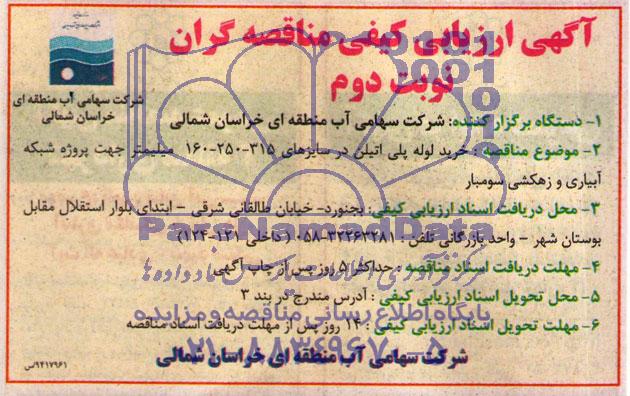 آگهی ارزیابی کیفی مناقصه گران
نوبت دوم
شرکت سهامی آب منطقه ای
خراسان شمالی
۱- دستگاه برگزار کننده: شرکت سهامی آب منطقه ای خراسان شمالی
۲- موضوع مناقصه : خرید لوله پلی اتیلن در سایزهای ۳۱۵-۲۵۰-۱۶۰ میلیمتر جهت پروژه شبکه
آبیاری و زهکشی سومبار
۳- محل دریافت اسناد ارزیابی کیفی: بجنورد- خیابان طالقانی شرقی - ابتدای بلوار استقلال مقابل
بوستان شهر - واحد بازرگانی تلفن : ۳۲۲۶۳۲۸۱-۰۵۸ ( داخلی ۱۲۱-۱۲۴)
۴- مهلت دریافت اسناد مناقصه : حداکثر ۵ روز پس از چاپ آگهی
۵- محل تحویل اسناد ارزیابی کیفی : آدرس مندرج در بند ۳
۶- مهلت تحویل اسناد ارزیابی کیفی : ۱۴ روز پس از مهلت دریافت اسناد مناقصه
شرکت سهامی آب منطقه ای خراسان شمالی
۹۴۱۷۹۶۱/س
ParsNamadData
مرکز فرآوری اطلاعات پارس نماد داده ها
پایگاه اطلاع رسانی مناقصه و مزایده
۰۲۱-۸۸۳۴۹۶۷۰-۵